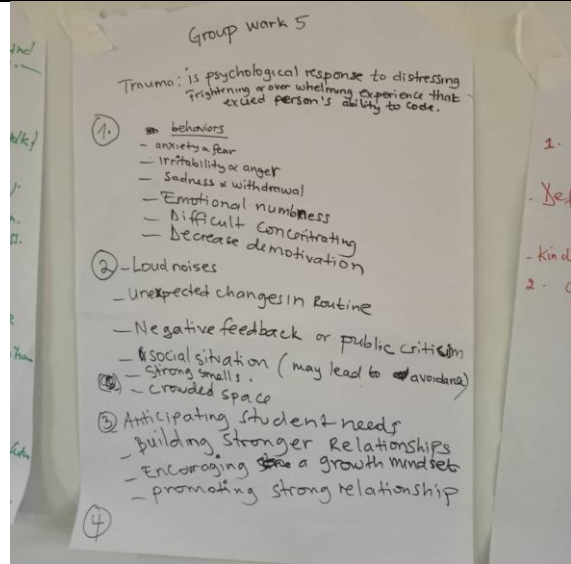 Group work 5
Trauma: is psychological response to distressing
frightening or over whelming experience that
exceed person's ability to code.
1. behaviors
- anxiety & fear
- irritability & anger
- Sadness & withdrawal
- Emotional numbness
- Difficult concentrating
- Decrease demotivation
2 - Loud noises
- unexpected changes in Routine
- Negative feedback or public criticism
- social situation (may lead to avoidance)
- Strong smells.
- crowded space
3 Anticipating student needs
- Building Stronger Relationships
- Encouraging a growth mindset
- promoting strong relationship
4
1.
- kind
2.